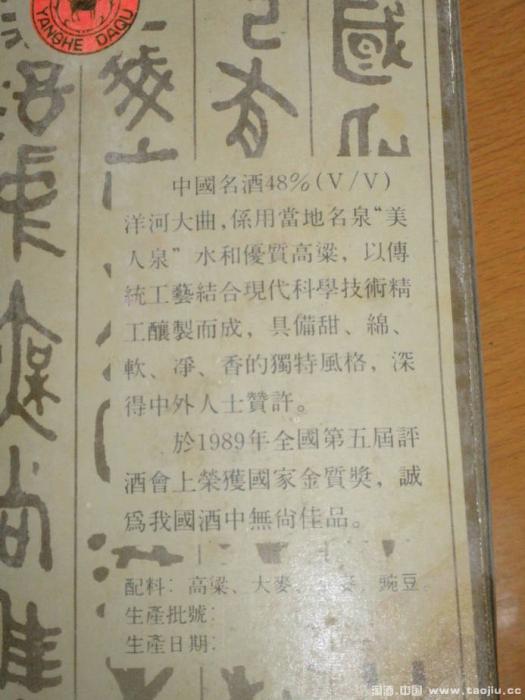 YANGHE DAQU
中國名酒48%(V/V)
洋河大曲,係用當地名泉“美
人泉”水和優質高粱,以傳
統工藝結合現代科學技術精
工釀製而成,具備甜、綿、
軟、凈、香的獨特風格,深
得中外人士贊許。
於1989年全國第五屆評
酒會上榮獲國家金質獎,誠
爲我國酒中無尚佳品。
配料:高粱、大麥、麥、豌豆。
生產批號:
生產日期:
淘酒.中国 www.taojiu.cc